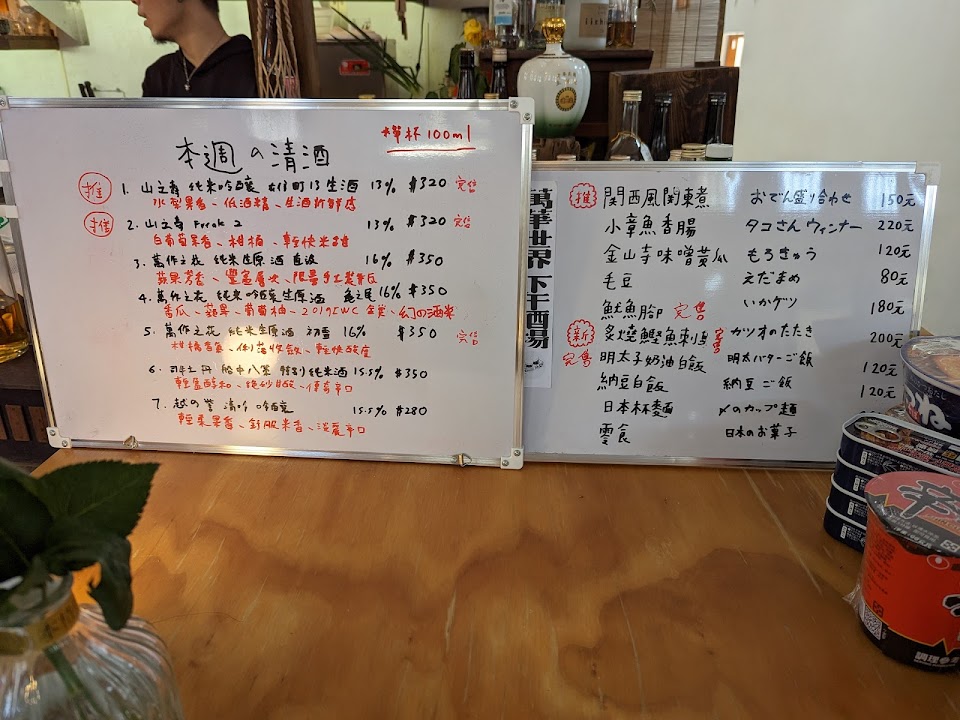 本週の清酒
單杯 100ml
推 1. 山之壽 純米吟釀 女子町13 生酒 13% $320 完售
水梨果香、低酒精、生酒新鮮感
推 2. 山之壽 Freak 2 13% $320 完售
白葡萄果香、柑橘、輕快米甜
3. 萬作之花 純米生原酒 直汲 16% $350
蘋果芳香、豐富層次、限量手工裝瓶
4. 萬作之花 純米吟釀生原酒 龜之尾 16% $350
香瓜、蘋果、葡萄柚、2019 IWC 金賞、幻の酒米
5. 萬作之花 純米生原酒 初雪 16% $350 完售
柑橘香氣、俐落收斂、輕快酸度
6. 司牡丹 船中八策 特別純米酒 15.5% $350
輕盈醇和、絕妙甘酸、傳奇辛口
7. 越の譽 清吟 吟釀 15.5% $280
輕柔果香、舒服米香、淡麗辛口
萬華世界下午酒場
推 関西風関東煮 おでん盛り合わせ 150元
小章魚香腸 タコさんウィンナー 220元
金山寺味噌黃瓜 もろきゅう 120元
毛豆 えだまめ 80元
魷魚腳 完售 いかゲソ 180元
新 炙燒鰹魚刺身 完售 カツオのたたき 200元
完售 明太子奶油白飯 明太バターご飯 120元
納豆白飯 納豆ご飯 120元
日本杯麵 〆のカップ麺
零食 日本のお菓子
調理